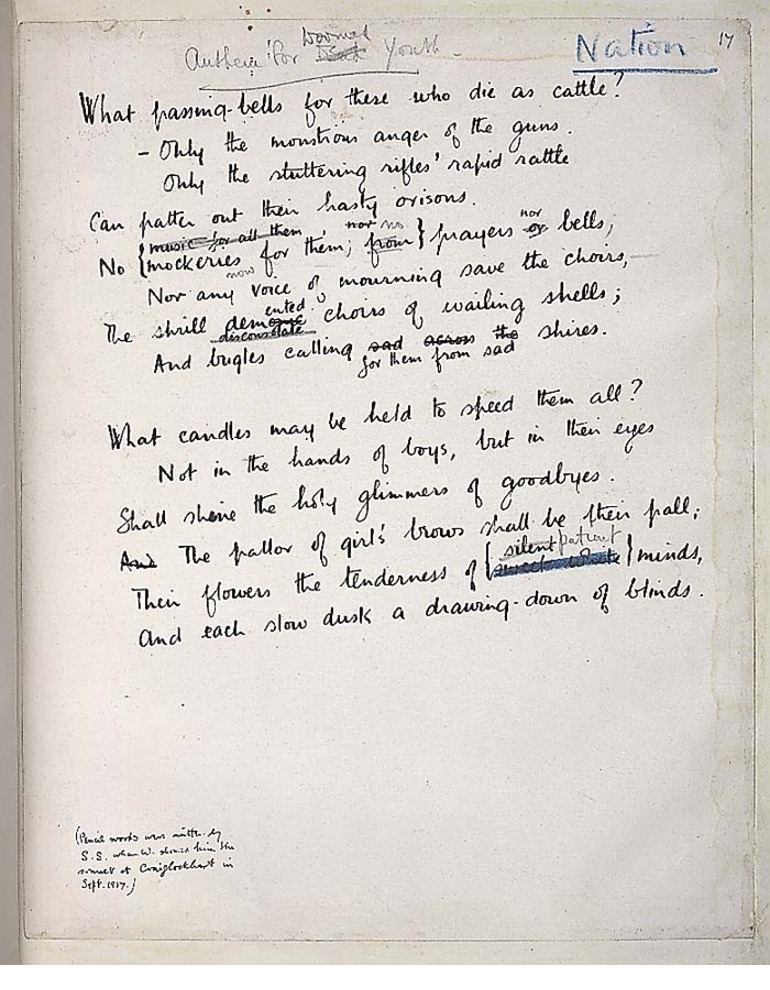 Anthem for Doomed Dead Youth -
Nation
17
What passing-bells for these who die as cattle?
- Only the monstrous anger of the guns.
Only the stuttering rifles' rapid rattle
Can patter out their hasty orisons.
music for all them nor no nor
No { mockeries for them; from } prayers or bells,
now
Nor any voice of mourning save the choirs, -
ented
The shrill demone choirs of wailing shells;
disconsolate
And bugles calling sad across the shires.
for them from sad
What candles may be held to speed them all?
Not in the hands of boys, but in their eyes
Shall shine the holy glimmers of goodbyes.
And The pallor of girls' brows shall be their pall;
silent patient
Their flowers the tenderness of { sweet white } minds,
And each slow dusk a drawing-down of blinds.
(Pencil words were written by
S.S. when W. showed him the
sonnet at Craiglockhart in
Sept. 1917.)